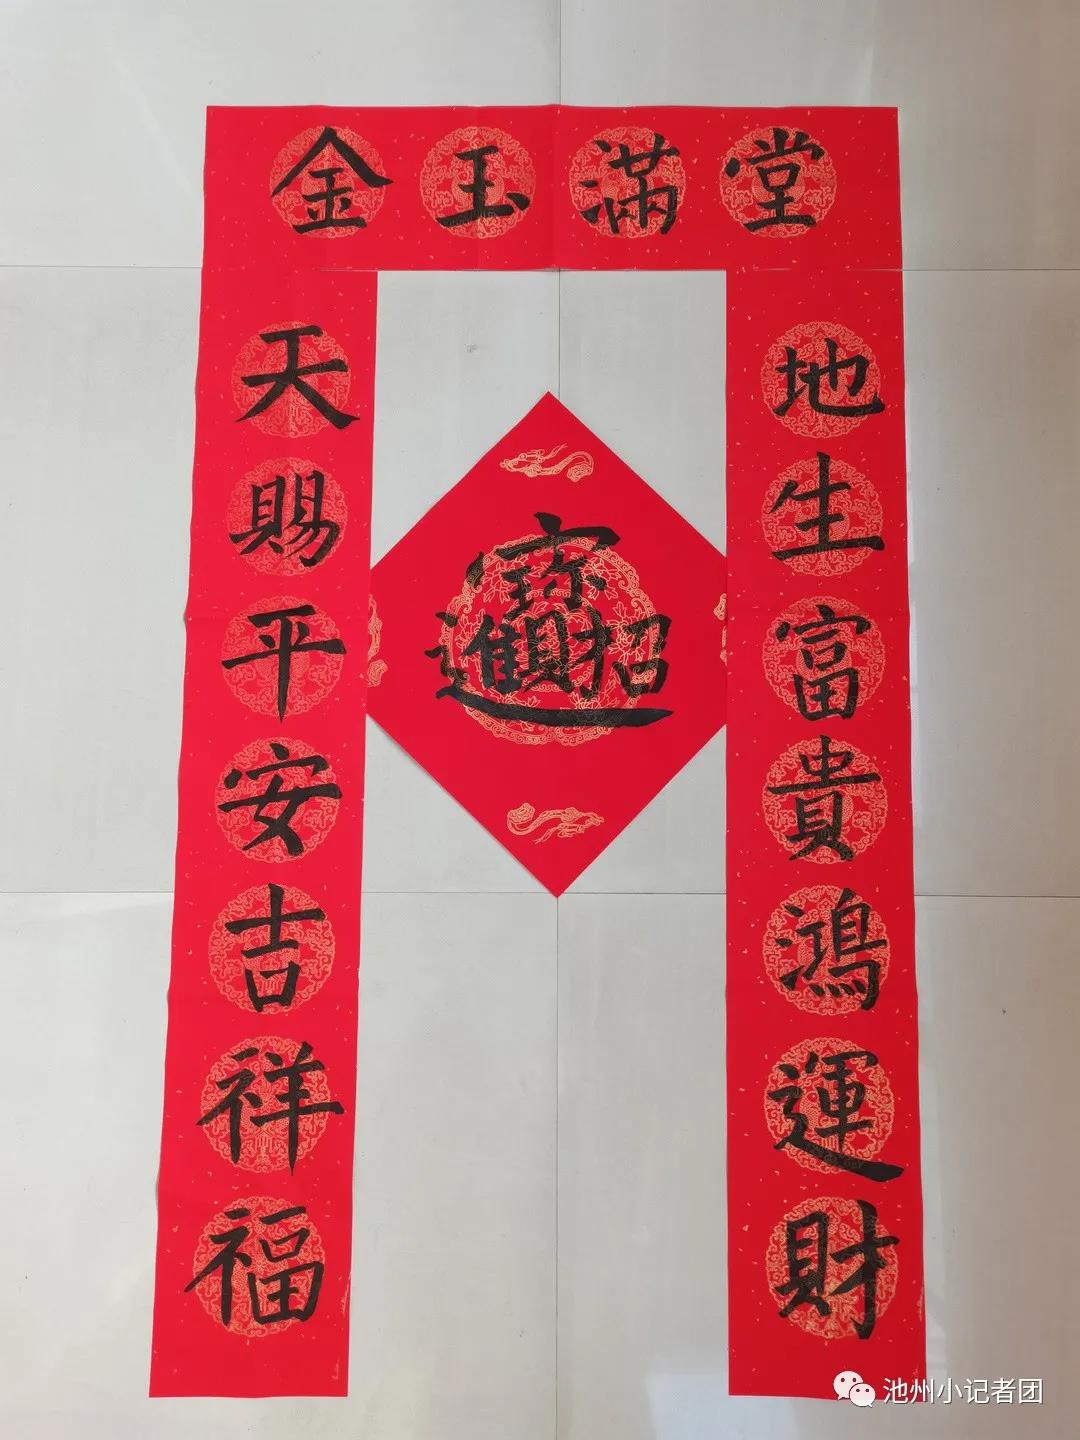 金玉滿堂
天賜平安吉祥福
地生富貴鴻運財
招財進寶
池州小记者团